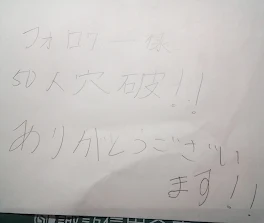 フォロワー様
50人穴破!!
ありがとうござい
ます!!